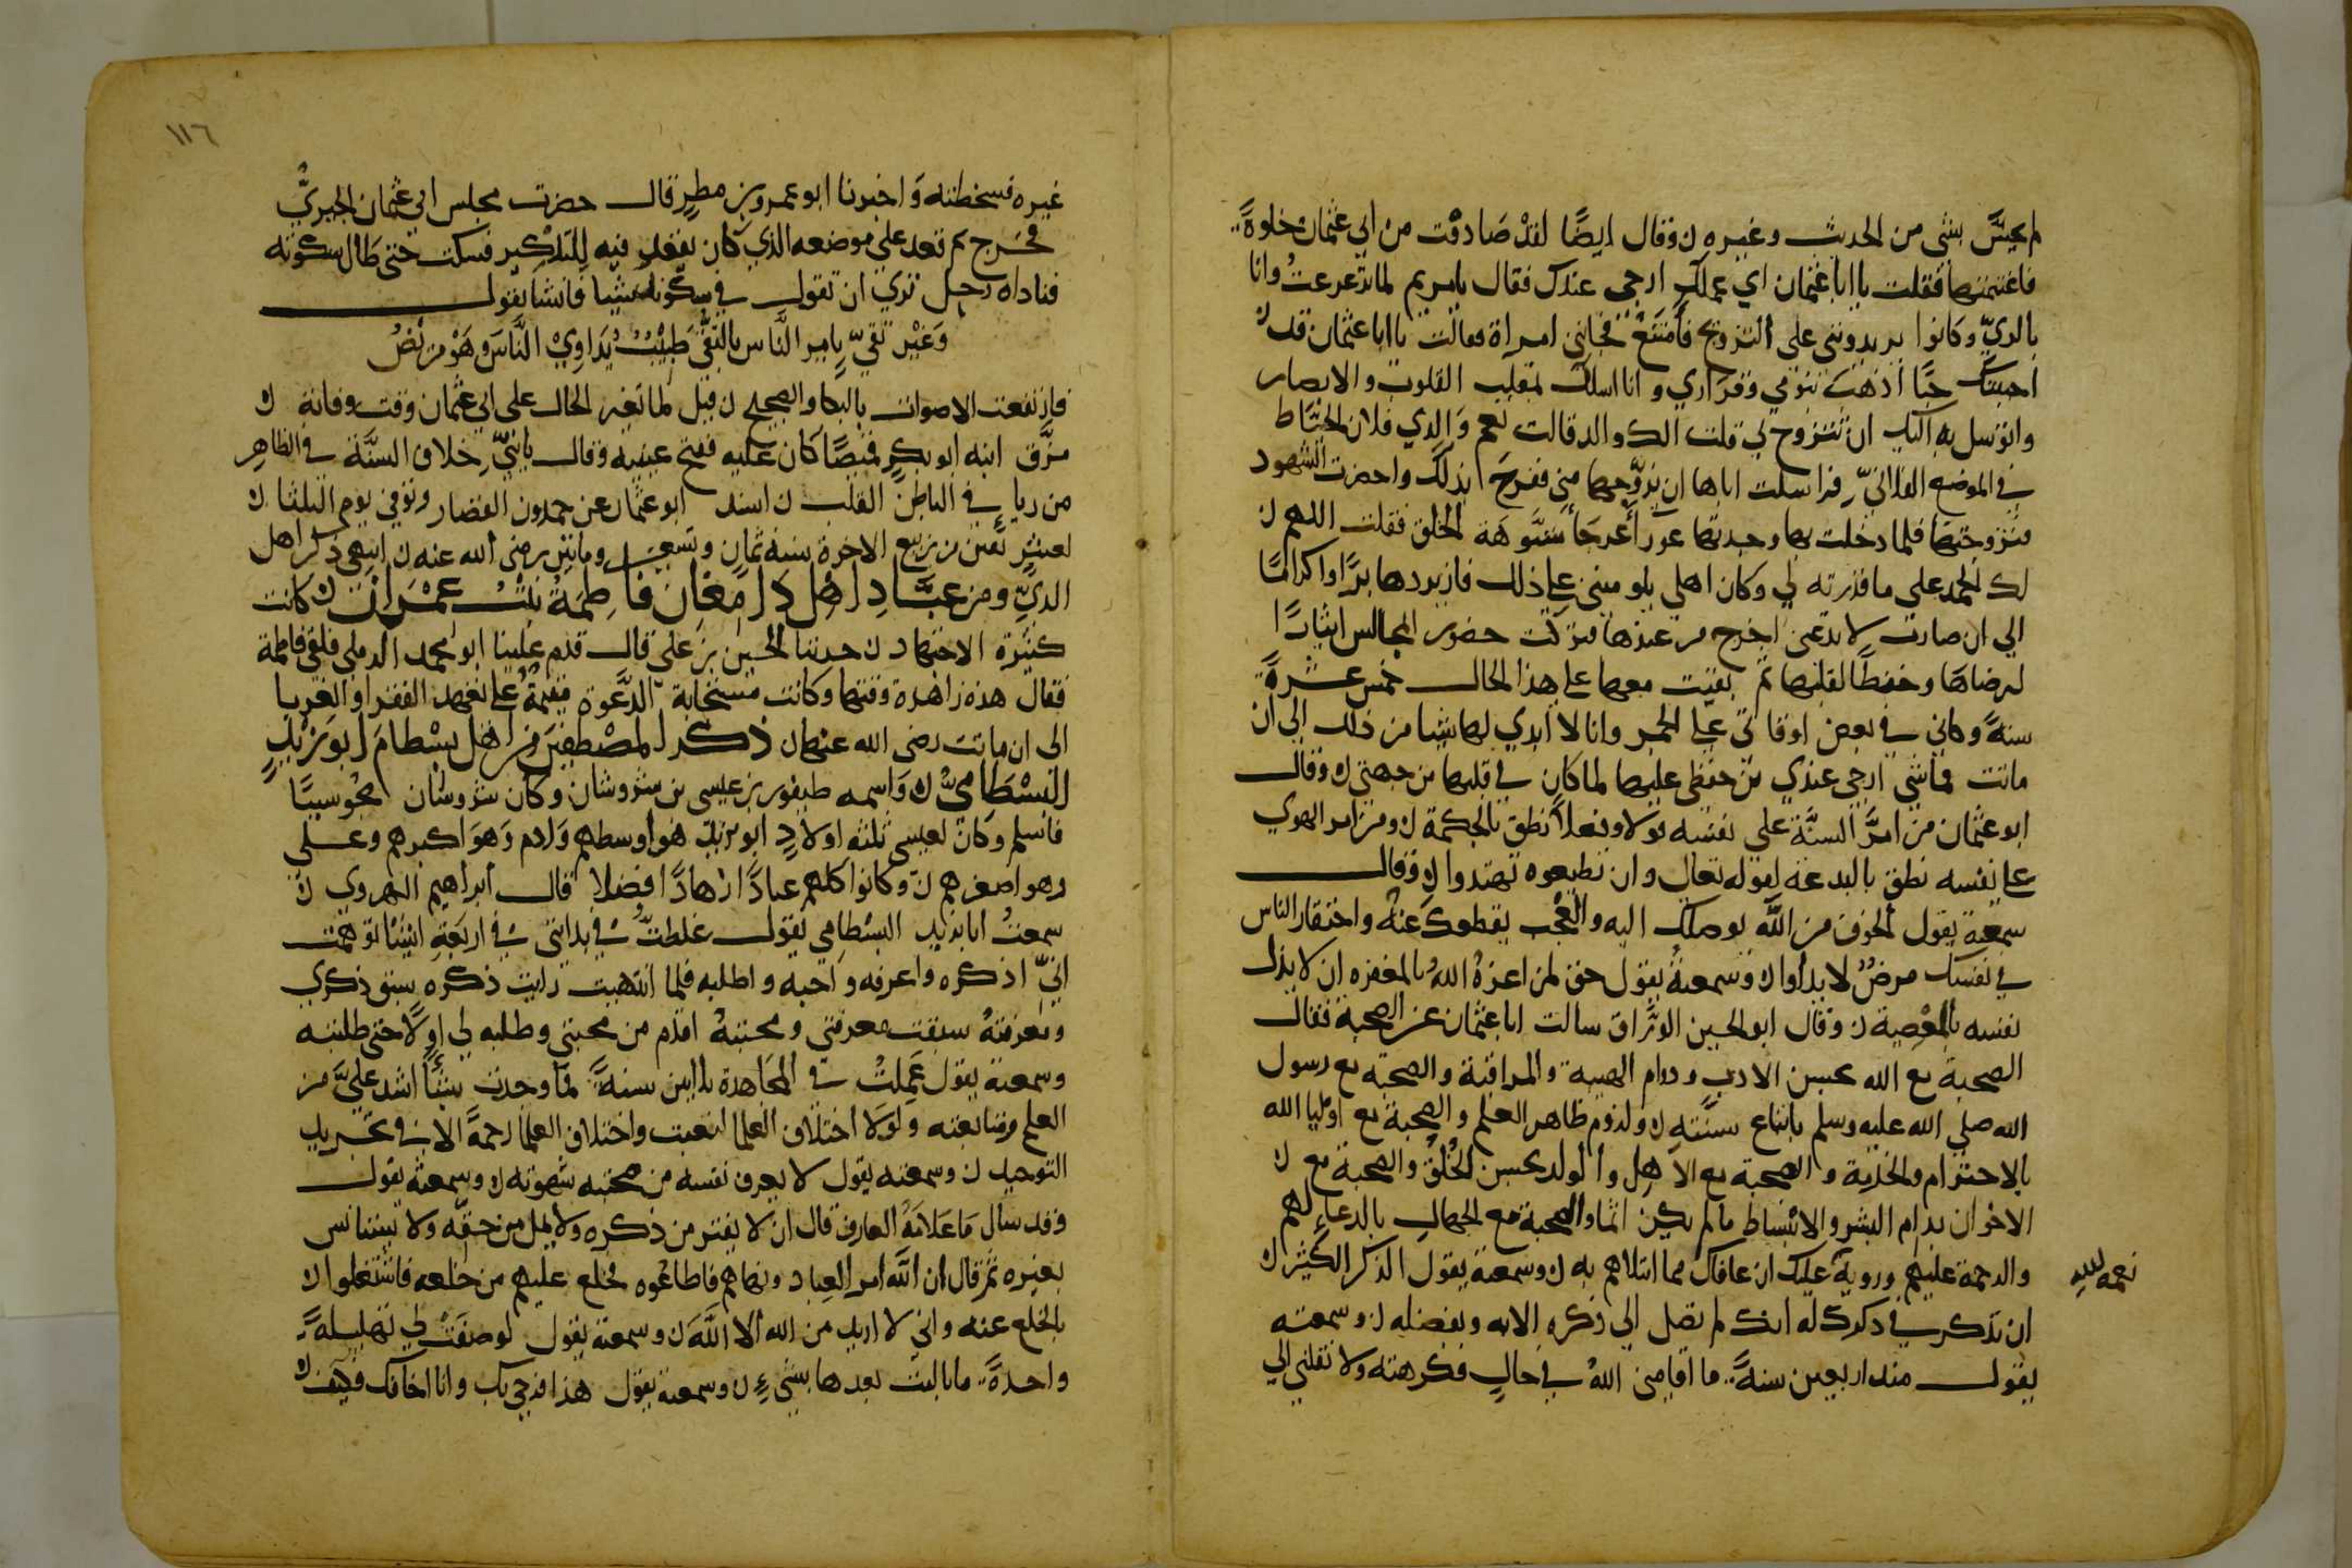 لم يحسّ بشى من الحديث وغيره وقال ايضًا لقد صَادفْت من ابي عثمان خلوةً
فاغتنمتها فقلت يا ابا عثمان اي عملك ارجى عندك فقال يا مريم لما ترعرعتُ وانا
بالريّ وكانوا يريدونني على التزويج فأمتنع فجاتني امراة فقالت يا ابا عثمان قد
احببتك حبًا اذهب نومي وقراري وانا اسلك بمقلب القلوب والابصار
واتوسل به اليك ان تتزوج بي قلت الك والد قالت نعم وَالدي فلان الخياط
في الموضع الفلاني فراسلت اباها ان يزوجها مني ففرح بذلك واحضرت الشهود
فتزوجتها فلما دخلت بها وجدتها عورا عرجا مشوهة الخلق فقلت اللهم
لك الحمد على ما قدرته لي وكان اهلي يلوموننى على ذلك فازيدها برًا واكرامًا
الى ان صارت لا تدعنى اخرج من عندها فتركت حضور المجالس ايثارًا
لرضاهَا وحفظًا لقلبها ثم بقيت معها على هذا الحال خمس عشرةَ
سنةً وكاني في بعض اوقاتى على الجمر وانا لا ابدي لها شيا من ذلك الى ان
ماتت فما شى ارجى عندي من حفظى عليها لما كان في قلبها من جهتى وقال
ابو عثمان من امرّ السنَّة على نفسه قولا وفعلاً نطق بالحكمة ومن امر الهوي
على نفسه نطق بالبدعة لقوله تعالى وان تطيعوه تهتدوا وقال
سمعته يقول الخوف من الله يوصلك اليه والعُجب يقطعك عَنهُ واحتقار الناس
في نفسك مرضٌ لا يداوا وسمعتهُ يقول حق لمن اعزهُ اللهُ بالمغفره ان لا يذل
نفسه بالمعصية وقال ابو الحسين الورّاق سالت ابا عثمان عن الصحبة فقال
الصحبة مع الله بحسن الادب ودوام الهيبة والمراقبة والصحبة مع رسول
الله صلى الله عليه وسلم باتباع سنّته ولزوم ظاهر العلم والصحبة مع اوليا الله
بالاحترام والخدمة والصحبة مع الاهل والولد بحسن الخُلُق والصحبة مع
الاخوان بدوام البشر والانبساط ما لم يكن اثما والصحبة مع الجهال بالدعاء لهم
والرحمة عليهم وروية نعمة الله عليك ان عافاك مما ابتلاهم به وسمعته يقول الذكر الكثير
ان تذكر في ذكرك له انك لم تصل الى ذكره الا به وبفضله وسمعته
يقول منذ اربعين سنةً ما اقامنى اللهُ في حالٍ فكرهته ولا نقلني الى
غيره فسخطته وَاخبرنا ابو عمرو بن مطرٍ قال حضرت مجلس ابي عثمان الحيريّ
فخرج ثم قعد على موضعه الذي كان يقعد فيه للتذكير فسكت حتى طال سكوته
فناداه رجل تري ان تقول في سكوتك شيا فانشا يقول
وَغَيْر تقيّ يامر النَّاس بالتقَى طَبِيْبٌ يُدَاوِيْ النَّاسَ وهْوَ مَرِيْضُ
فارتفعت الاصوات بالبكا والضجيج قيل لما تغير الحال على ابي عثمان وقت وفاته
مزّق ابنه ابو بكرٍ قميصًا كان عليه ففتح عينيه وقال يا بنيّ خلاف السنَّة في الظاهِر
من رياٍ في الباطن القلب اسند ابو عثمان عن حمدون القصار وتوفي يوم الثلثا
لعشرٍ بقين من ربيع الاخرة سنة ثمانٍ وتسعين ومايتين رضى الله عنه انتهى ذكر اهل
الريّ ومن عبَّادِ اهْلِ دَامغان فاطِمَةُ بنْتُ عِمْرَان كانت
كثيرة الاجتهاد حدثنا الحسين بن علي قال قدم علينا ابو محمد الرملي فلقى فاطمة
فقال هذه زاهدة وقتها وكانت مستجابة الدعوة مقيمةً على تعهد الفقرا والغربا
الى ان ماتت رضى الله عنها ذكر المصْطفيَن من اهْل بِسْطامَ ابو يزيْدٍ
البسْطَاميّ وَاسمه طيفور بن عيسى بن سروشان وكان سروشان مجوسيًّا
فاسلم وكان لعيسى ثلثة اولادٍ ابو يزيد هو اوسطهم وَادم وَهوَ اكبرهم وعلي
وهو اصغرهم وكانوا كلهم عبادًا زهادًا فضلا قال ابراهيم الهروي
سمعتُ ابا يزيد البسْطامي يقول غلطتُ في بدايتى في اربعَةِ اشيَا توهمت
انيّ اذكره واعرفه واحبه واطلبه فلما انتهيت رايت ذكره سبق ذكري
ومعرفتهُ سبقت معرفتي ومحبتهُ اقدم من محبتي وطلبه لى اولاً حتى طلبته
وسمعته يقول عَمِلتُ في المجَاهدة ثلاثين سنةً فما وجدت شيئًا اشد عليَّ من
العلم ومتابعته وَلولا اختلاف العلما لتعبت واختلاف العلما رحمةٌ الا في تجريد
التوحيد وسمعته يقول لا يعرف نفسه من صحبته شهوته وسمعته يقول
وقد سال مَا عَلامَةُ العارف قال ان لا يفتر من ذكره ولا يمل من حقه ولا يستانس
بغيره ثم قال ان الله امر العباد ونهاهم فاطاعُوه فخلع عليهم من خلعه فاشتغلوا
بالخلع عنه واني لا اريد من الله الا الله وسمعته يقول لو صفَتْ لي تهليلةٌ
واحدةٌ ما باليت بعدها بشىءٍ وسمعته يقول هذا فرحي بك وانا اخافك فكيف